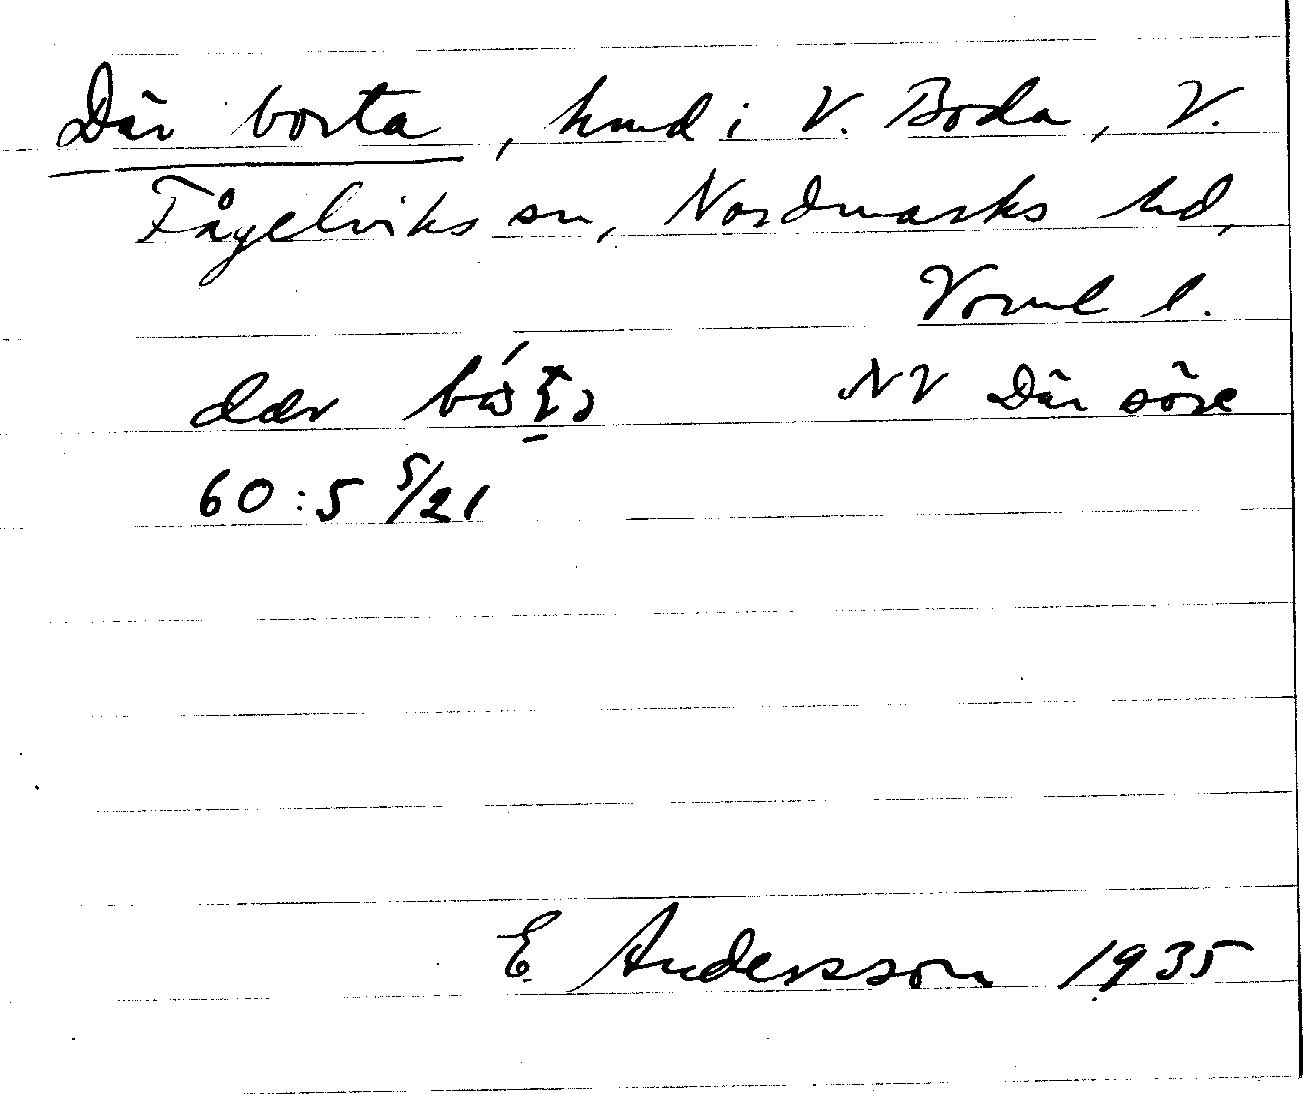 Där borta, hmd i V. Boda, V.
Fågelviks sn, Nordmarks hd,
Vrml l.
dær NV Där söre
60:5 5/21
E Andersson 1935